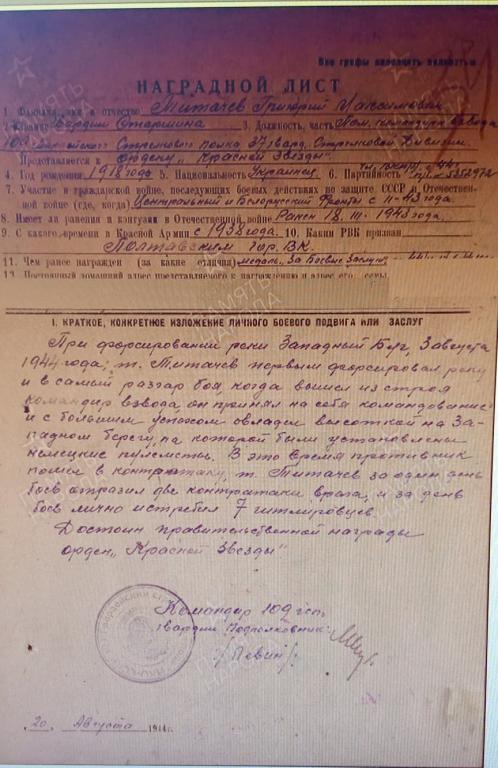 Все графы заполнять полностью
НАГРАДНОЙ ЛИСТ
1. Фамилия, имя и отчество Титачев Григорий Максимович
2. Звание Гвардии Старшина 3. Должность, часть Пом. командира взвода
109 Гвардейского Стрелкового полка 37 гвард. Стрелковой Дивизии
Представляется к ордену „Красной Звезды"
4. Год рождения 1918 года 5. Национальность Украинец 6. Партийность
7. Участие в гражданской войне, последующих боевых действиях по защите СССР и Отечествен-
ной войне (где, когда) Центральный и Белорусский Фронты с II-43 года
8. Имеет ли ранения и контузии в Отечественной войне Ранен 18.III-1943 года
9. С какого времени в Красной Армии с 1938 года. 10. Каким РВК призван
Полтавским Гор. ВК.
11. Чем ранее награжден (за какие отличия) медаль „За Боевые Заслуги"
12. Постоянный домашний адрес представляемого к награждению и адрес его семьи
I. КРАТКОЕ, КОНКРЕТНОЕ ИЗЛОЖЕНИЕ ЛИЧНОГО БОЕВОГО ПОДВИГА ИЛИ ЗАСЛУГ
При форсировании реки Западный Буг, 3 августа
1944 года, т. Титачев первым форсировал реку
и в самый разгар боя, когда вышел из строя
командир взвода, он принял на себя командование
и с большим успехом овладел высоткой на За-
падном берегу, на которой были установлены
немецкие пулеметы. В это время противник
пошел в контратаку, т. Титачев за один день
боев отразил две контратаки врага, и за день
боев лично истребил 7 гитлеровцев.
Достоин правительственной награды
орден „Красной Звезды"
Командир 109 гсп
гвардии Подполковник:
/Левин/:
„20" Августа 1944 г.
ПАМЯТЬ НАРОДА